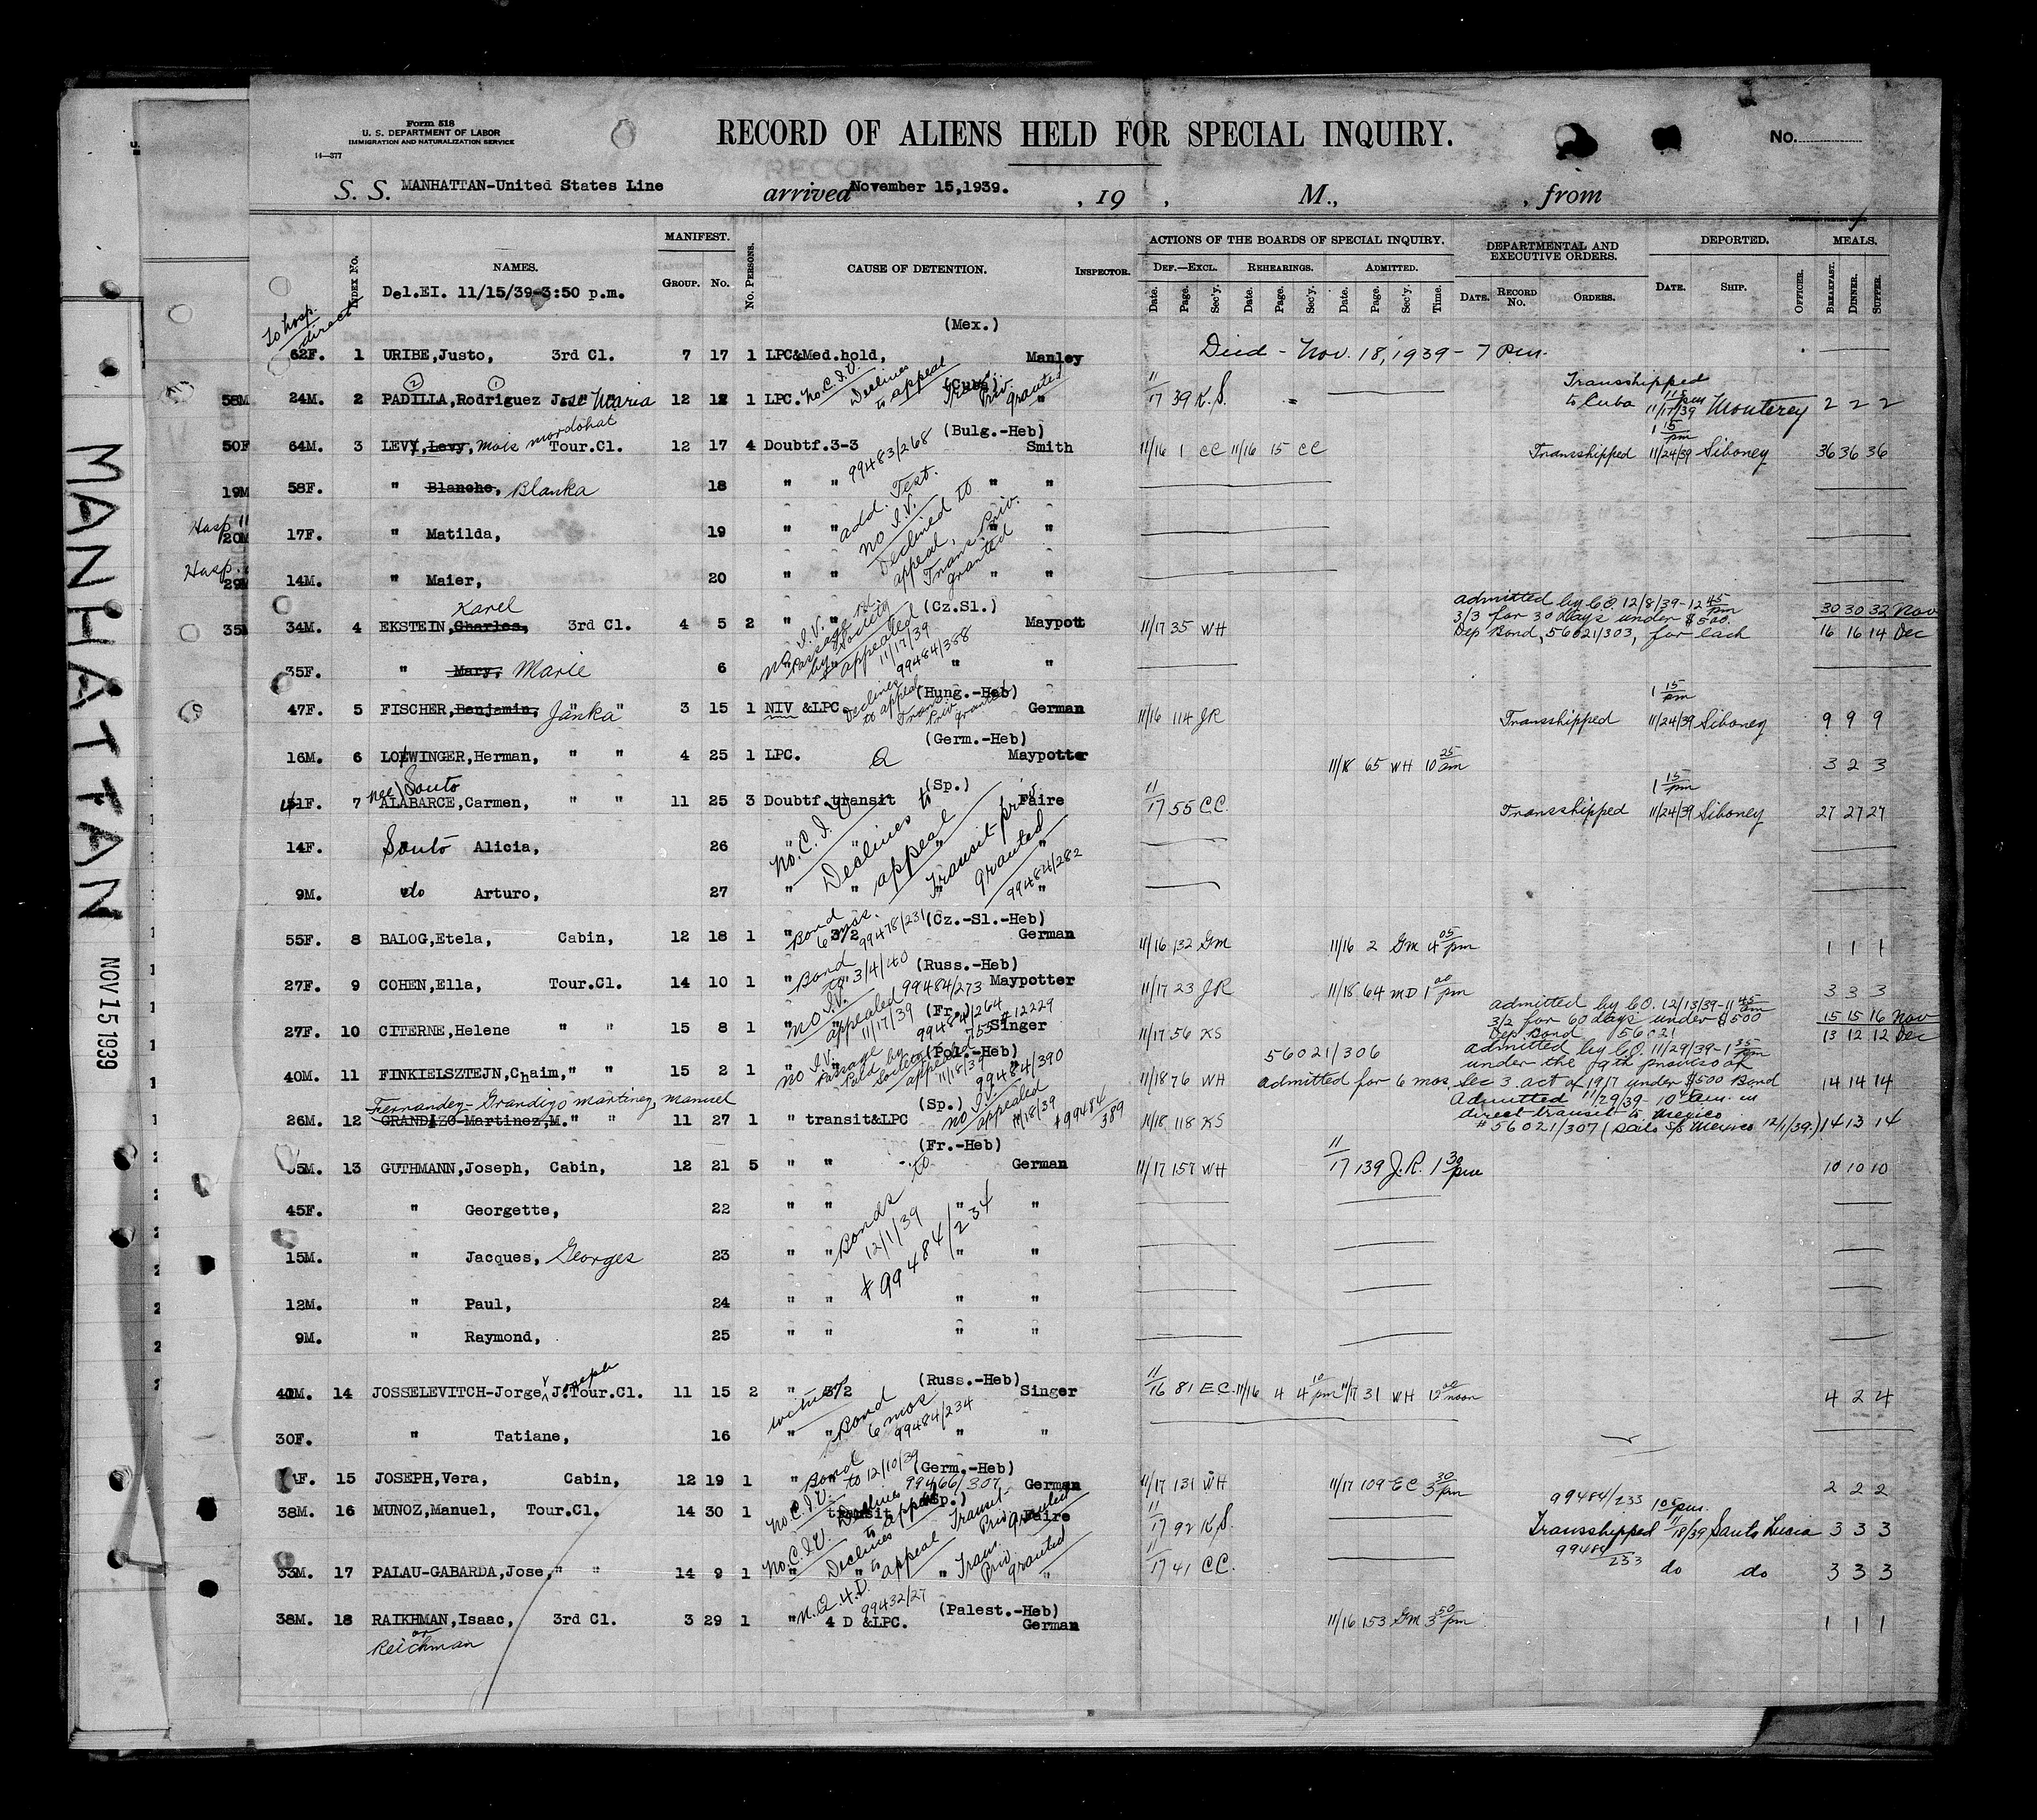 Form 518
U. S. DEPARTMENT OF LABOR
IMMIGRATION AND NATURALIZATION SERVICE
14—377
RECORD OF ALIENS HELD FOR SPECIAL INQUIRY.
No.
S. S. MANHATTAN-United States Line arrived November 15,1939. , 19 , M., , from
MANHATTAN NOV 15 1939
Index No. NAMES. MANIFEST. Group. No. No. Persons. CAUSE OF DETENTION. Inspector. ACTIONS OF THE BOARDS OF SPECIAL INQUIRY. DEPARTMENTAL AND EXECUTIVE ORDERS. DEPORTED. MEALS.
Def.—Excl. Rehearings. Admitted.
Date. Page. Sec'y. Date. Page. Sec'y. Date. Page. Sec'y. Time. Date. Record No. Orders. Date. Ship. Officer. Breakfast. Dinner. Supper.
Del.EI. 11/15/39-3:50 p.m.
To hosp. direct
(Mex.)
62F. 1 URIBE,Justo, 3rd Cl. 7 17 1 LPC&Med.hold, Manley Died - Nov. 18, 1939 - 7 P.m.
58M
(Cuba)
24M. 2 PADILLA,Rodriguez Jose Maria 12 12 1 LPC. No. C.I.V. Declines to appeal Trans. Priv. granted " 11/17 39 K.S. Transshipped to Cuba 11/17/39 Monterey 2 2 2
50F
(Bulg.-Heb)
64M. 3 LEVY, Levy, Mois mordohat Tour.Cl. 12 17 4 Doubtf.3-3 99483/268 Smith 11/16 1 CC 11/16 15 CC Transshipped 1 15 pm 11/24/39 Siboney 36 36 36
19M
58F. " Blanche, Blanka 18 " " " "
add. Test.
no I.V.
Hosp 11
20M
17F. " Matilda, 19 " " " "
Declined to appeal, Trans. Priv. granted
Hosp.
29M
14M. " Maier, 20 " " " "
35M
(Cz.Sl.)
34M. 4 EKSTEIN,Charles, Karel 3rd Cl. 4 5 2 " " Maypott 11/17 35 WH admitted by C.O. 12/8/39-12 45 pm 3/3 for 30 days under $500. Dep Bond, 56021/303, for each 30 30 32 Nov
16 16 14 Dec
no I.V. Passage by Society appealed 11/17/39 99484/388
35F. " Mary, Marie 6 " "
(Hung.-Heb)
47F. 5 FISCHER,Benjamin, Janka " " 3 15 1 NIV &LPC Declines to appeal Trans. Priv. granted German 11/16 114 JR Transshipped 1 15 pm 11/24/39 Siboney 9 9 9
(Germ.-Heb)
16M. 6 LOEWINGER,Herman, " " 4 25 1 LPC. Maypotter 11/18 65 WH 10 25 am 3 2 3
(Sp.)
41F. 7 nee Souto ALABARCE,Carmen, " " 11 25 3 Doubtf.transit Faire 11/17 55 C.C. Transshipped 1 15 pm 11/24/39 Siboney 27 27 27
No. C.I.V. Declines to appeal Transit priv. granted 99484/282
14F. Souto Alicia, 26 " " " "
9M. do Arturo, 27 " " " "
(Cz.-Sl.-Heb)
55F. 8 BALOG,Etela, Cabin, 12 18 1 " 3/2 Bond 6 mos. 99478/231 German 11/16 132 Gm 11/16 2 Gm 4 05 pm 1 1 1
(Russ.-Heb)
27F. 9 COHEN,Ella, Tour.Cl. 14 10 1 " " Bond to 3/4/40 99484/273 Maypotter 11/17 23 JR 11/18 64 MD 1 00 pm 3 3 3
(Fr.)
27F. 10 CITERNE,Helene " " 15 8 1 " no I.V. appealed 11/17/39 99484/264 Singer 11/17 56 KS admitted by C.O. 12/13/39-11 45 am 3/2 for 60 days under $500 Dep. Bond 56021 15 15 16 Nov
13 12 12 Dec
(Pol.-Heb)
40M. 11 FINKIELSZTEJN,Chaim," " 15 2 1 " no I.V. Passage Paid by Society appealed 11/18/39 99484/390 11/18 76 WH 56021/306 admitted by C.O. 11/29/39-1 35 pm under the 9th proviso of
admitted for 6 mos. Sec 3. act of 1917 under $500 Bond 14 14 14
Fernandez-Grandizo Martinez, Manuel
(Sp.)
26M. 12 GRANDIZO-Martinez,M." " 11 27 1 " transit&LPC no I.V. appealed 11/18/39 #99484/389 11/18 118 KS Admitted 11/29/39- 10 a.m. in direct transit to Mexico #56021/307 (sails S/S Mexico 12/1/39.) 14 13 14
(Fr.-Heb)
35M. 13 GUTHMANN,Joseph, Cabin, 12 21 5 " " German 11/17 157 WH 11/17 139 J.R. 1 30 pm 10 10 10
45F. " Georgette, 22 " " " "
Bonds to 12/1/39 #99484/234
15M. " Jacques, Georges 23 " " " "
12M. " Paul, 24 " " " "
9M. " Raymond, 25 " " " "
(Russ.-Heb)
40M. 14 JOSSELEVITCH-Jorge, J. Joseph Tour.Cl. 11 15 2 " 3/2 Singer 11/16 81 E.C. 11/16 4 4 10 pm 11/17 31 WH 12 00 noon 4 2 4
30F. " Tatiane, 16 " " Bond 6 mos 99484/234 " "
(Germ.-Heb)
F. 15 JOSEPH,Vera, Cabin, 12 19 1 " " Bond to 12/10/39 99466/307 German 11/17 131 WH 11/17 109 EC 3 30 pm 2 2 2
(Sp.)
38M. 16 MUNOZ,Manuel, Tour.Cl. 14 30 1 transit No. C.I.V. Declines to appeal Transit Priv. granted Faire 11/17 92 K.S. 99484/233 Transshipped 1 05 pm. 11/18/39 Santa Lucia 3 3 3
33M. 17 PALAU-GABARDA,Jose," " 14 9 1 " " No. C.I.V. Declines to appeal Trans. Priv. granted " " 11/17 41 C.C. 99484/233 do do 3 3 3
(Palest.-Heb)
38M. 18 RAIKHMAN,Isaac, 3rd Cl. 3 29 1 " 4 D &LPC. 99432/27 German 11/16 153 Gm 3 50 pm 1 1 1
or Reichman